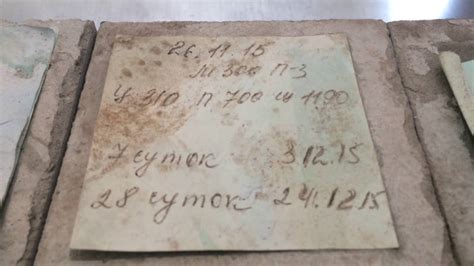 26.11.15
М 300 П-3
Ц 310 П 700 щ 1190
7 суток 3.12.15
28 суток 24.12.15